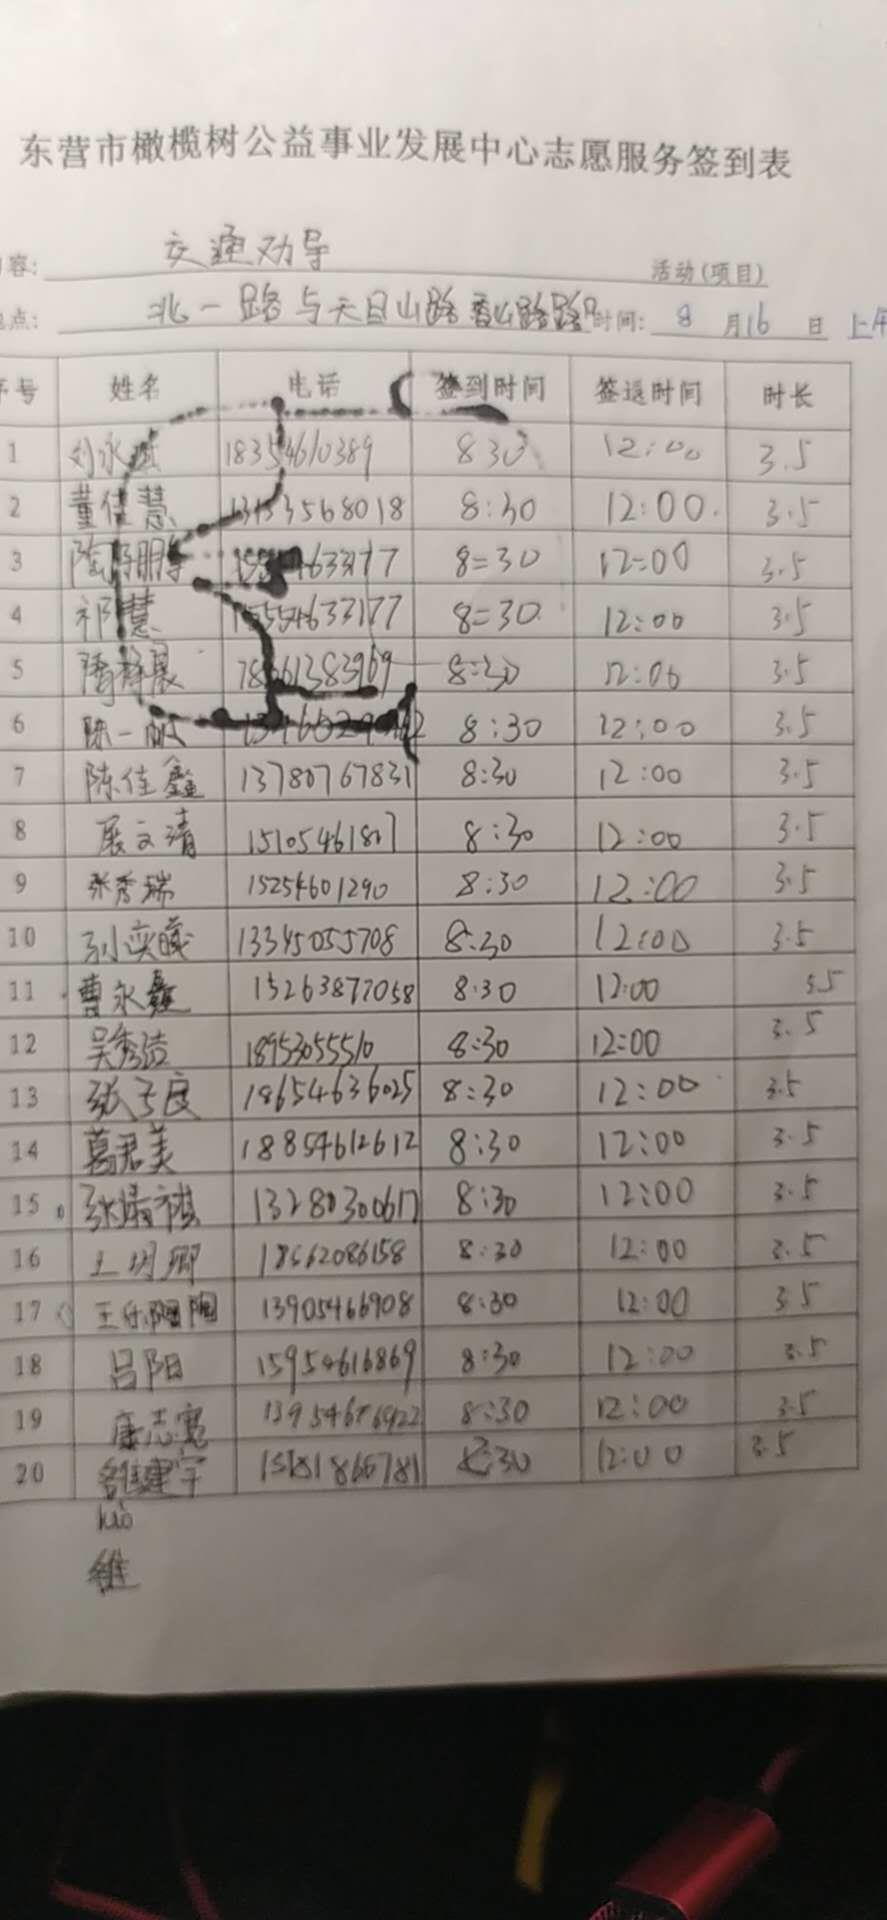 东营市橄榄树公益事业发展中心志愿服务签到表
容: 交通劝导 活动(项目)
点: 北一路与天目山路 香山路路口 时间: 8 月 16 日 上午
序号 姓名 电话 签到时间 签退时间 时长
1 刘永 18354610389 8 30 12:00 3.5
2 董佳慧 8:30 12:00. 3.5
3 8=30 12=00 3.5
4 祁慧 8=30 12:00 3.5
5 8:30 12:00 3.5
6 陈一帆 8:30 12:00 3.5
7 陈佳鑫 13780767831 8:30 12:00 3.5
8 展文清 15105461807 8:30 12:00 3.5
9 张秀瑞 15254601290 8:30 12:00 3.5
10 孙奕曦 13345055708 8:30 12:00 3.5
11 曹永鑫 15263877058 8:30 12:00 3.5
12 吴秀洁 18953055510 8:30 12:00 3.5
13 张子度 18654636025 8:30 12:00 3.5
14 葛君美 18854612612 8:30 12:00 3.5
15 张婧祺 13280300617 8:30 12:00 3.5
16 王玥卿 18562086158 8:30 12:00 3.5
17 王乐陶陶 13905466908 8:30 12:00 3.5
18 吕阳 15954616869 8:30 12:00 3.5
19 康志宽 8:30 12:00 3.5
20 雒建宇 15181866781 8:30 12:00 3.5
luò
雒